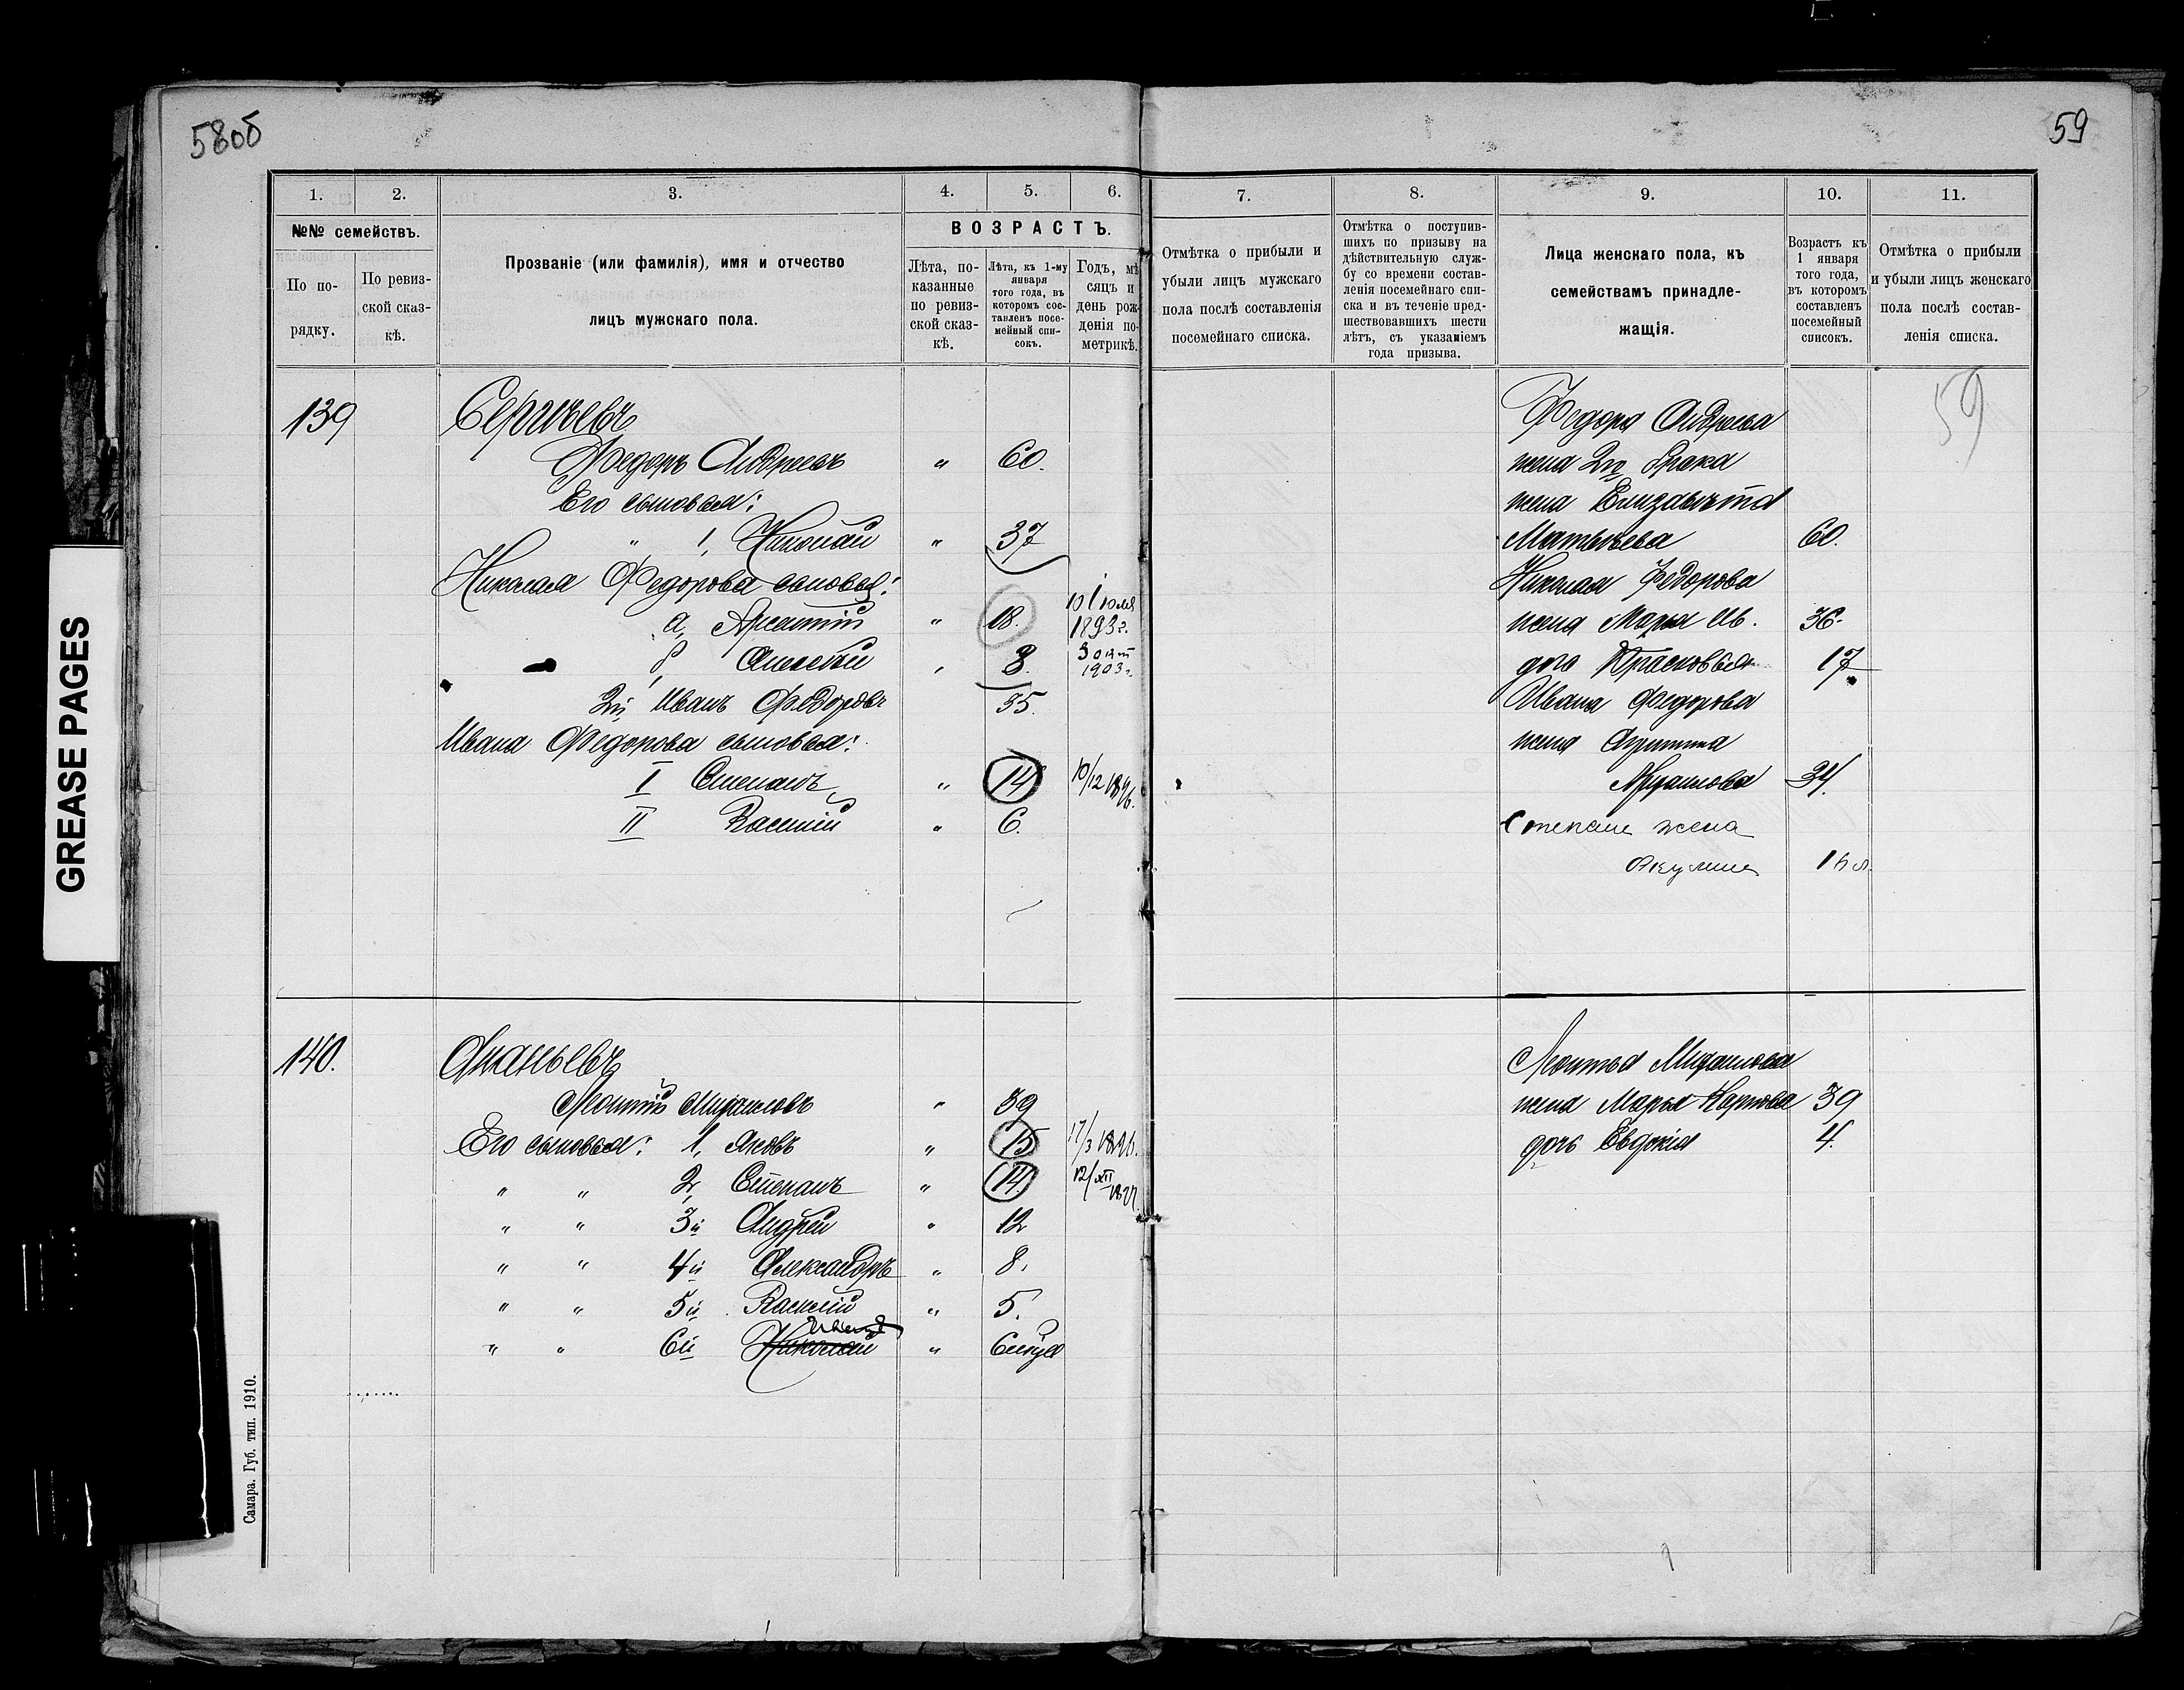 58об
59
1.
2.
3.
4.
5.
6.
№№ семействъ.
По по-
рядку.
По ревиз-
ской сказ-
кѣ.
Прозваніе (или фамилія), имя и отчество
лицъ мужскаго пола.
ВОЗРАСТЪ.
Лѣта, по-
казанные
по ревиз-
ской сказ-
кѣ.
Лѣта, къ 1-му
января
того года, въ
которомъ сос-
тавленъ посе-
мейный спи-
сокъ.
Годъ, мѣ
сяцъ и
день рож-
денія по
метрикѣ.
7.
8.
9.
10.
11.
Отмѣтка о прибыли и
убыли лицъ мужскаго
пола послѣ составленія
посемейнаго списка.
Отмѣтка о поступив-
шихъ по призыву на
дѣйствительную служ-
бу со времени состав-
ленія посемейнаго спи-
ска и въ теченіе пред-
шествовавшихъ шести
лѣтъ, съ указаніемъ
года призыва.
Лица женскаго пола, къ
семействамъ принадле-
жащія.
Возрастъ къ
1 января
того года,
въ которомъ
составленъ
посемейный
списокъ.
Отмѣтка о прибыли
и убыли лицъ женскаго
пола послѣ состав-
ленія списка.
139 Сергѣевъ
Федоръ Андреевъ " 60.
Его сыновья:
" 1, Николай " 37
Николая Федорова сыновья:
а, Арсентій " 18. 10 Iюля 1893 г.
Алексѣй 8. 3 окт 1903 г.
2й Иванъ Федоровъ 35.
Ивана Федорова сыновья:
I Степанъ " 14 10/12 1896.
II Василій " 6.
Федора Андреева
жена 2го брака
жена Елизавѣта
Матвѣева 60.
Николая Федорова
жена Марья Ив. 36.
дочь Прасковья 17
Ивана Федорова
жена
34.
Степана жена
Акулина
59
140. Ананьевъ
Леонтій Михаиловъ " 39
Его сыновья: 1, Яковъ " 15 17/3
" " 2, Степанъ " 14. 12/XII
" " 3й Андрей " 12
" " 4й Александръ " 8.
" " 5й Василій " 5.
" " 6й Николай "
Леонтья Михаилова
жена Марья Карпова 39
дочь Евдокія 4.
Самара. Губ. тип. 1910.
GREASE PAGES